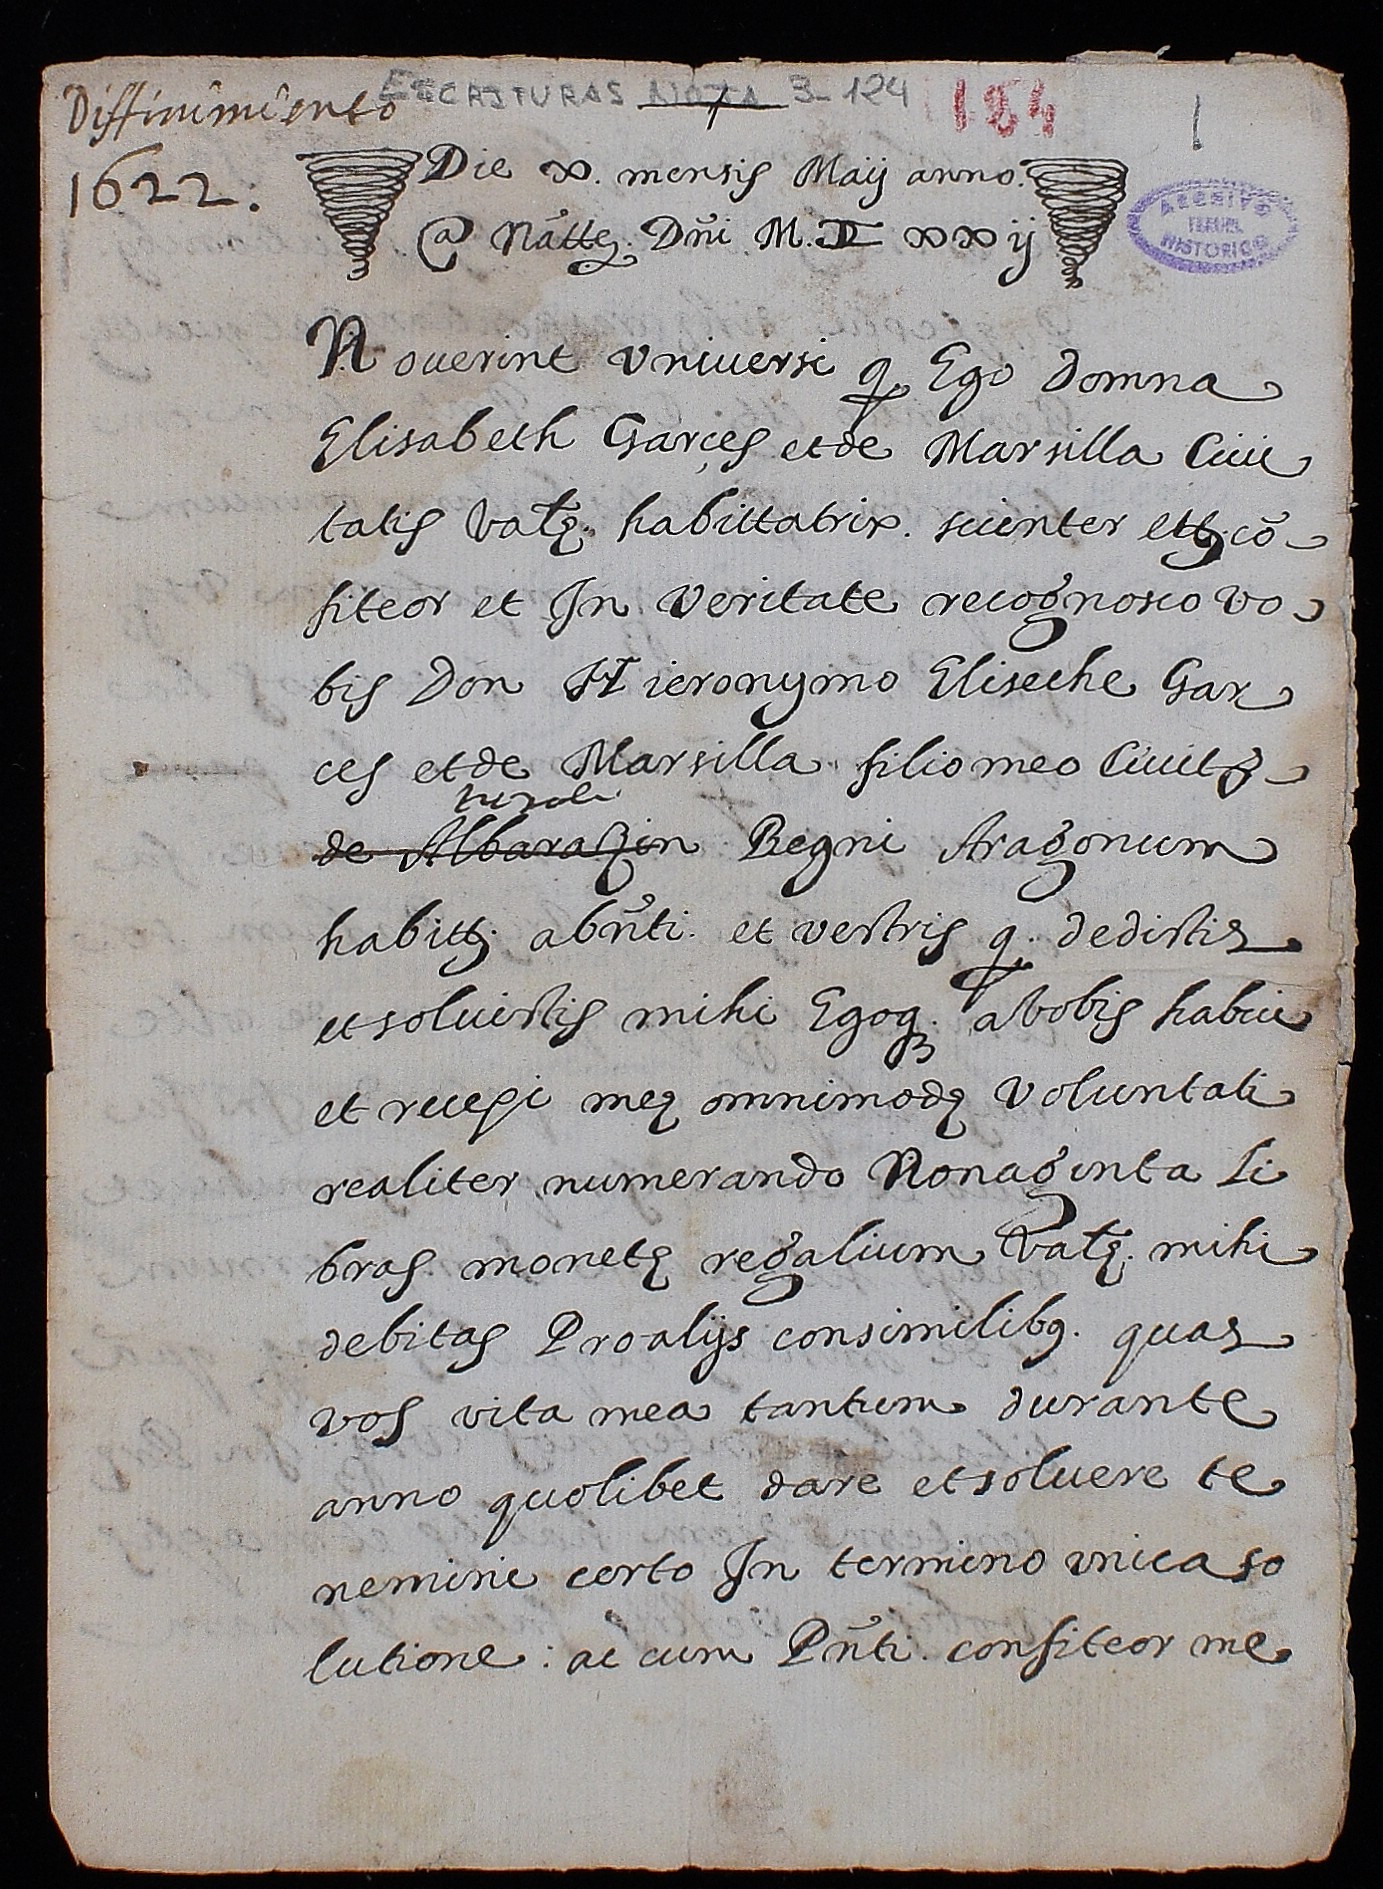 Diffinimiento
ESCRITURAS NOTA 3-124
184
1
1622.
Die x. mensis Maij anno.
@ Nãtte. Dñi M. DC xxij
ARCHIVO
TERUEL
HISTORICO
Nouerint vniuersi q. Ego domna
Elisabeth Garçes et de Marsilla Ciui
tatis Valę. habittatrix. scienter ettc. cõ
fiteor et In veritate recognosco vo
bis Don Hieronymo Eliseche Gar
ces et de Marsilla filio meo Ciuitę
turoli
de Albarazin Regni Aragonum
habitt. abñti. et vestris q. dedistis
et soluistis mihi Egoq. a vobis habui
et recepi meę omnimodę voluntati
realiter numerando Nonaginta Li
bras monetę regalium Valę. mihi
debitas Pro alijs consimilibq. quas
vos vita mea tantum durante
anno quolibet dare et soluere te
nemini certo In termino vnica so
lutione : ac cum Pñti. confiteor me